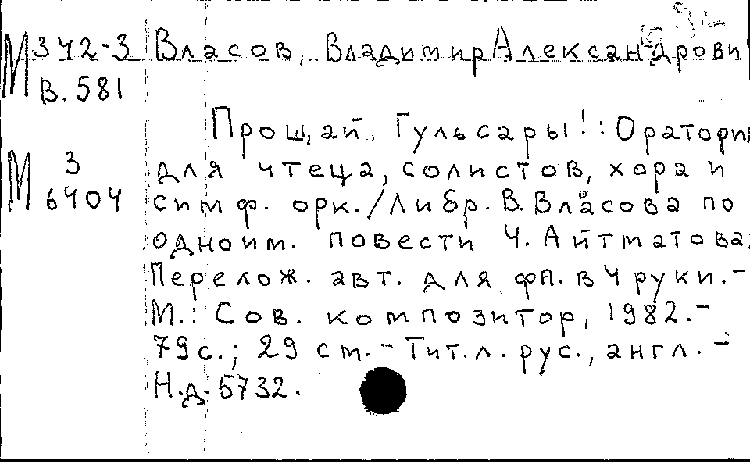 М 342-3 Власов, Владимир Александрови
В.581
Прощай, Гульсары!: Оратори
М 3 для чтеца, солистов, хора и
6404 симф. орк./Либр. В.Власова по
одноим. повести Ч. Айтматова:
Перелож. авт. для фп. в 4 руки.-
М.: Сов. композитор, 1982.-
79с.; 29 см.- Тит.л. рус., англ. -
Н.д. 5732.